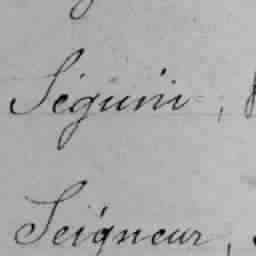 Séguin,
Seigneur,